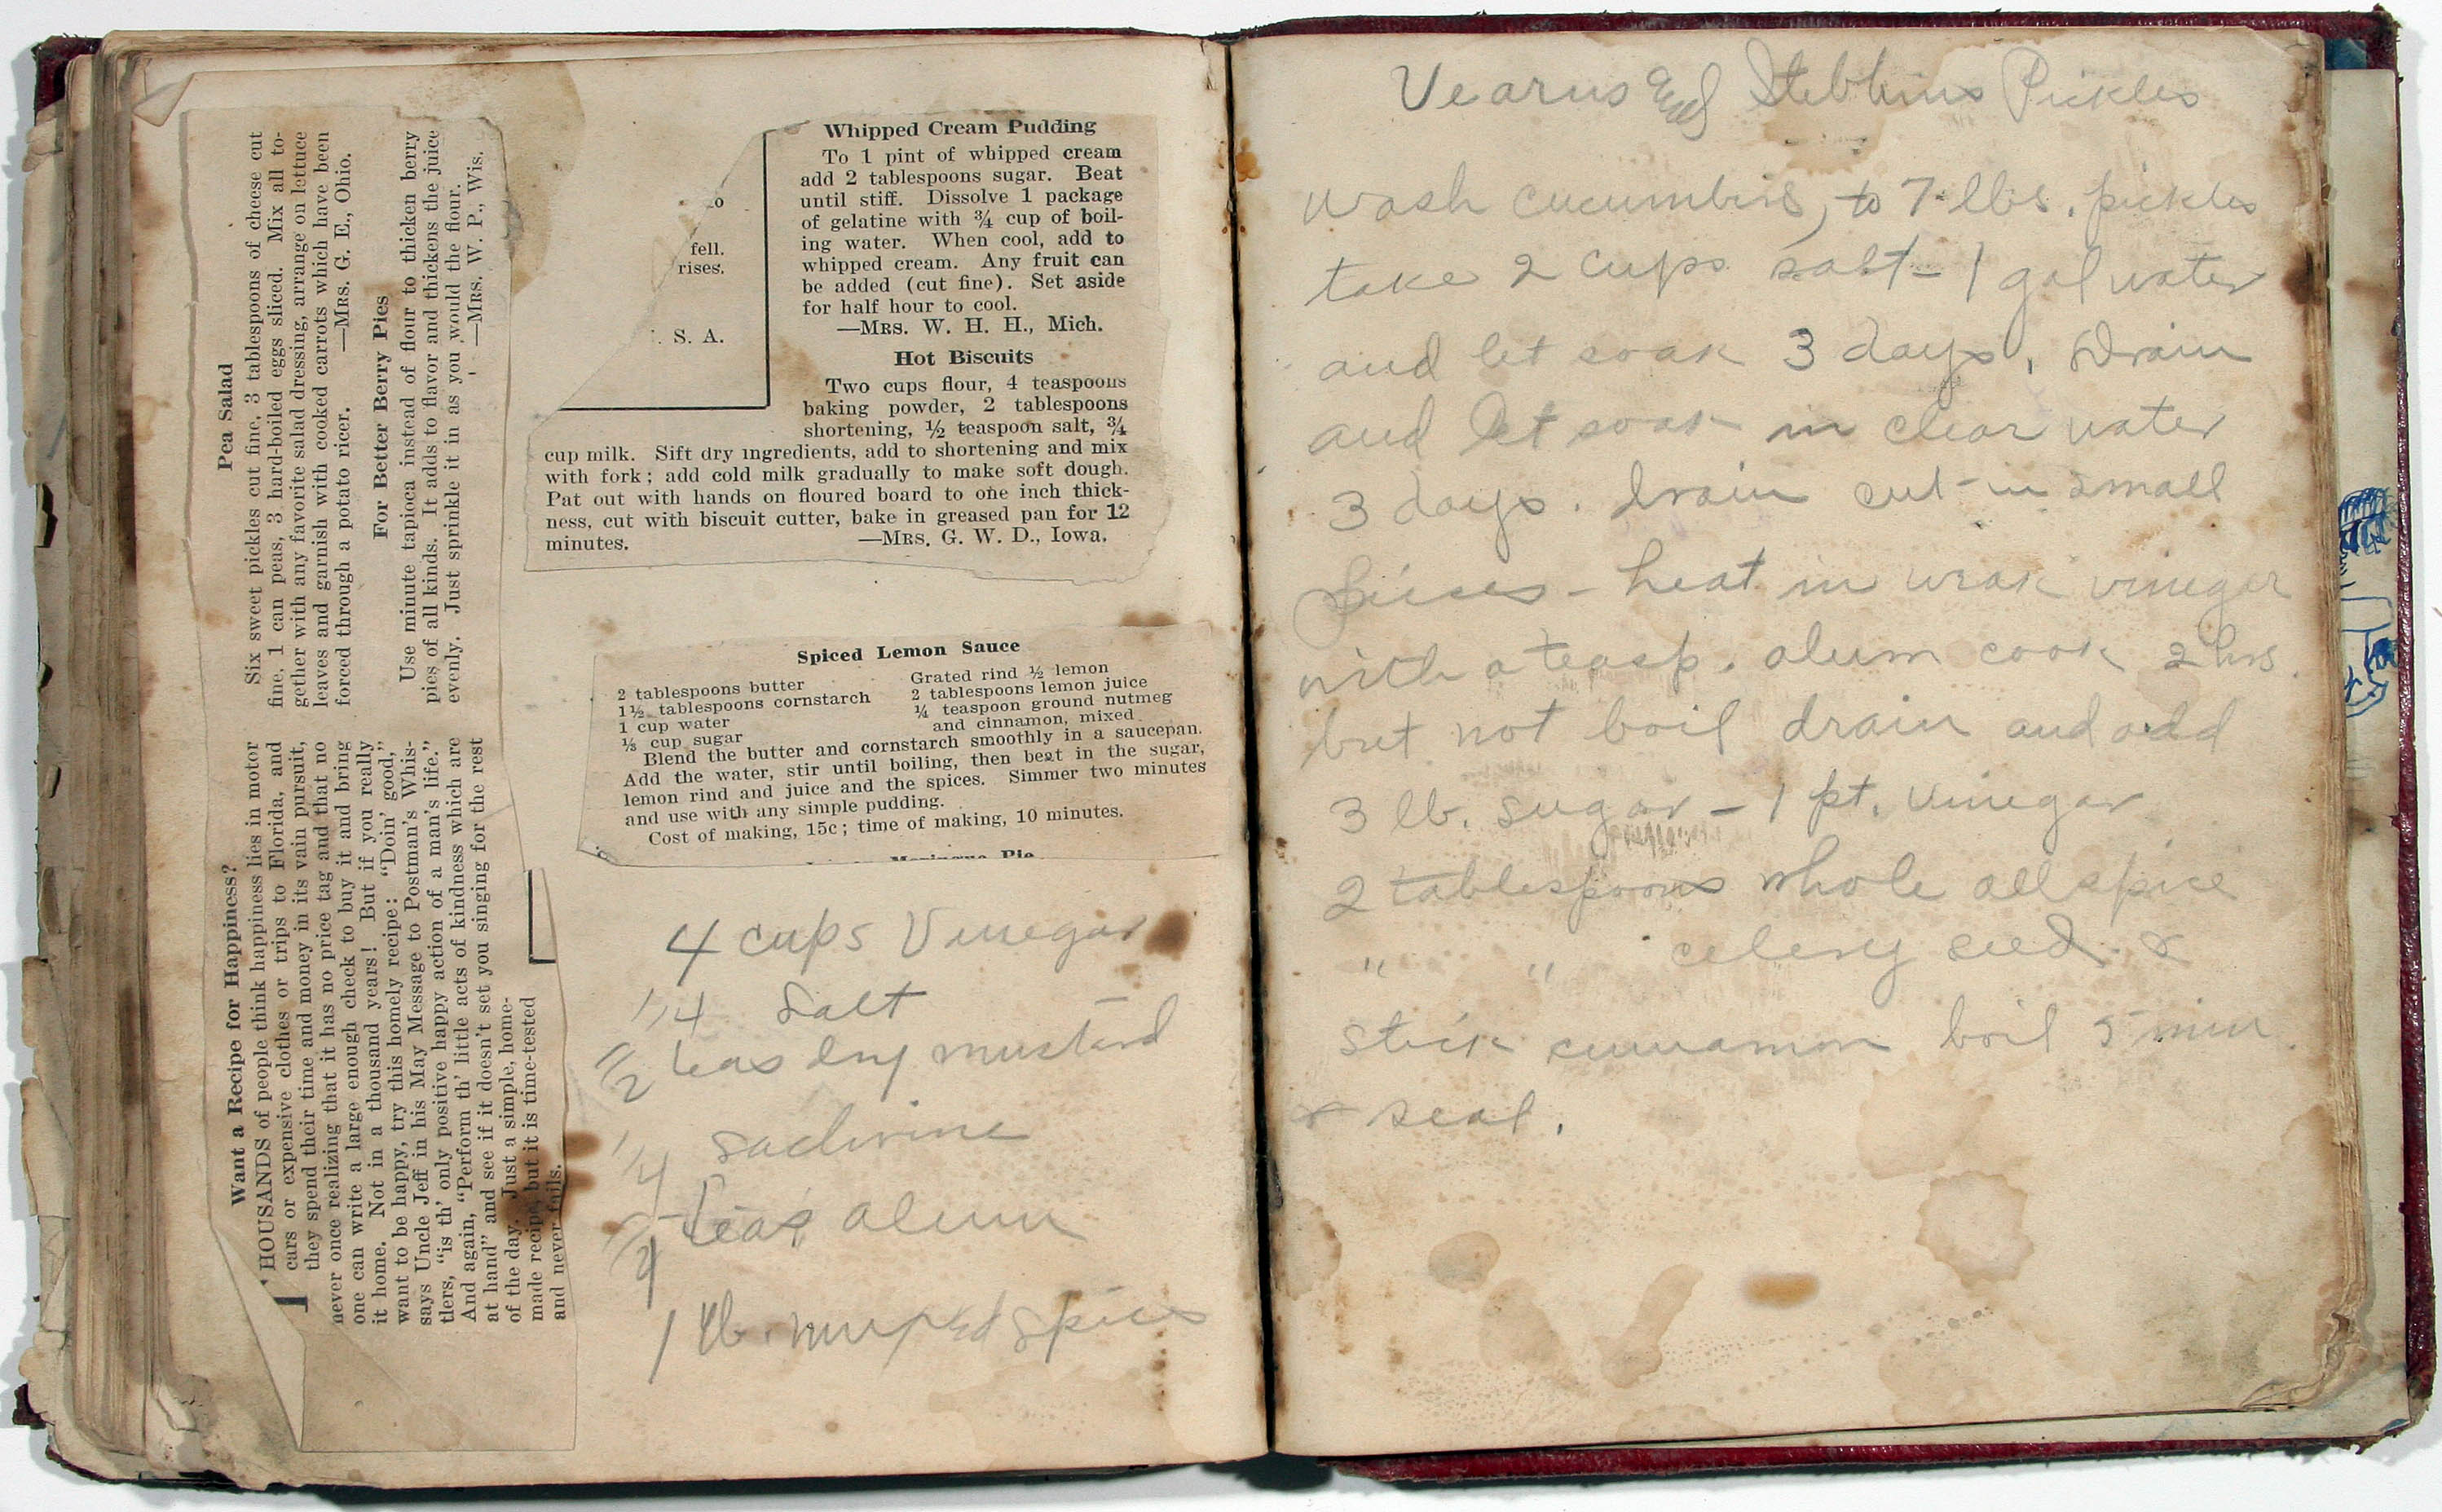 Pea Salad
Six sweet pickles cut fine, 3 tablespoons of cheese cut
fine, 1 can peas, 3 hard-boiled eggs sliced. Mix all to-
gether with any favorite salad dressing, arrange on lettuce
leaves and garnish with cooked carrots which have been
forced through a potato ricer. —MRS. G. E., Ohio.
For Better Berry Pies
Use minute tapioca instead of flour to thicken berry
pies of all kinds. It adds to flavor and thickens the juice
evenly. Just sprinkle it in as you would the flour.
—MRS. W. P., Wis.
Want a Recipe for Happiness?
THOUSANDS of people think happiness lies in motor
cars or expensive clothes or trips to Florida, and
they spend their time and money in its vain pursuit,
never once realizing that it has no price tag and that no
one can write a large enough check to buy it and bring
it home. Not in a thousand years! But if you really
want to be happy, try this homely recipe: "Doin' good,"
says Uncle Jeff in his May Message to Postman's Whis-
tlers, "is th' only positive happy action of a man's life."
And again, "Perform th' little acts of kindness which are
at hand" and see if it doesn't set you singing for the rest
of the day. Just a simple, home-
made recipe, but it is time-tested
and never fails.
to
fell.
rises.
. S. A.
Whipped Cream Pudding
To 1 pint of whipped cream
add 2 tablespoons sugar. Beat
until stiff. Dissolve 1 package
of gelatine with ¾ cup of boil-
ing water. When cool, add to
whipped cream. Any fruit can
be added (cut fine). Set aside
for half hour to cool.
—MRS. W. H. H., Mich.
Hot Biscuits
Two cups flour, 4 teaspoons
baking powder, 2 tablespoons
shortening, ½ teaspoon salt, ¾
cup milk. Sift dry ingredients, add to shortening and mix
with fork; add cold milk gradually to make soft dough.
Pat out with hands on floured board to one inch thick-
ness, cut with biscuit cutter, bake in greased pan for 12
minutes. —MRS. G. W. D., Iowa.
Spiced Lemon Sauce
2 tablespoons butter
1½ tablespoons cornstarch
1 cup water
⅓ cup sugar
Grated rind ½ lemon
2 tablespoons lemon juice
¼ teaspoon ground nutmeg
and cinnamon, mixed
Blend the butter and cornstarch smoothly in a saucepan.
Add the water, stir until boiling, then beat in the sugar,
lemon rind and juice and the spices. Simmer two minutes
and use with any simple pudding.
Cost of making, 15c; time of making, 10 minutes.
Meringue Pie
4 cups Vinegar
1/4 Salt
1/2 teas dry mustard
1/4
teas alum
1 lb. mixed spices
Vearns and Stebbins Pickles
Wash cucumbers, to 7 lbs. pickles
take 2 cups salt - 1 gal water
and let soak 3 days. Drain
and let soak in clear water
3 days. Drain cut in small
Pieces - heat in weak vinegar
with a teasp. alum cook 2 hrs.
but not boil drain and add
3 lb. sugar - 1 pt. vinegar
2 tablespoons whole all spice
" " celery seed &
stick cinnamon boil 5 min.
& seal.